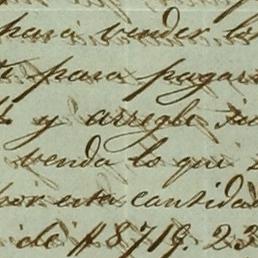 para vender lo
para pagar
y arregle su
venda lo que
por esta cantidad
de $8719.23